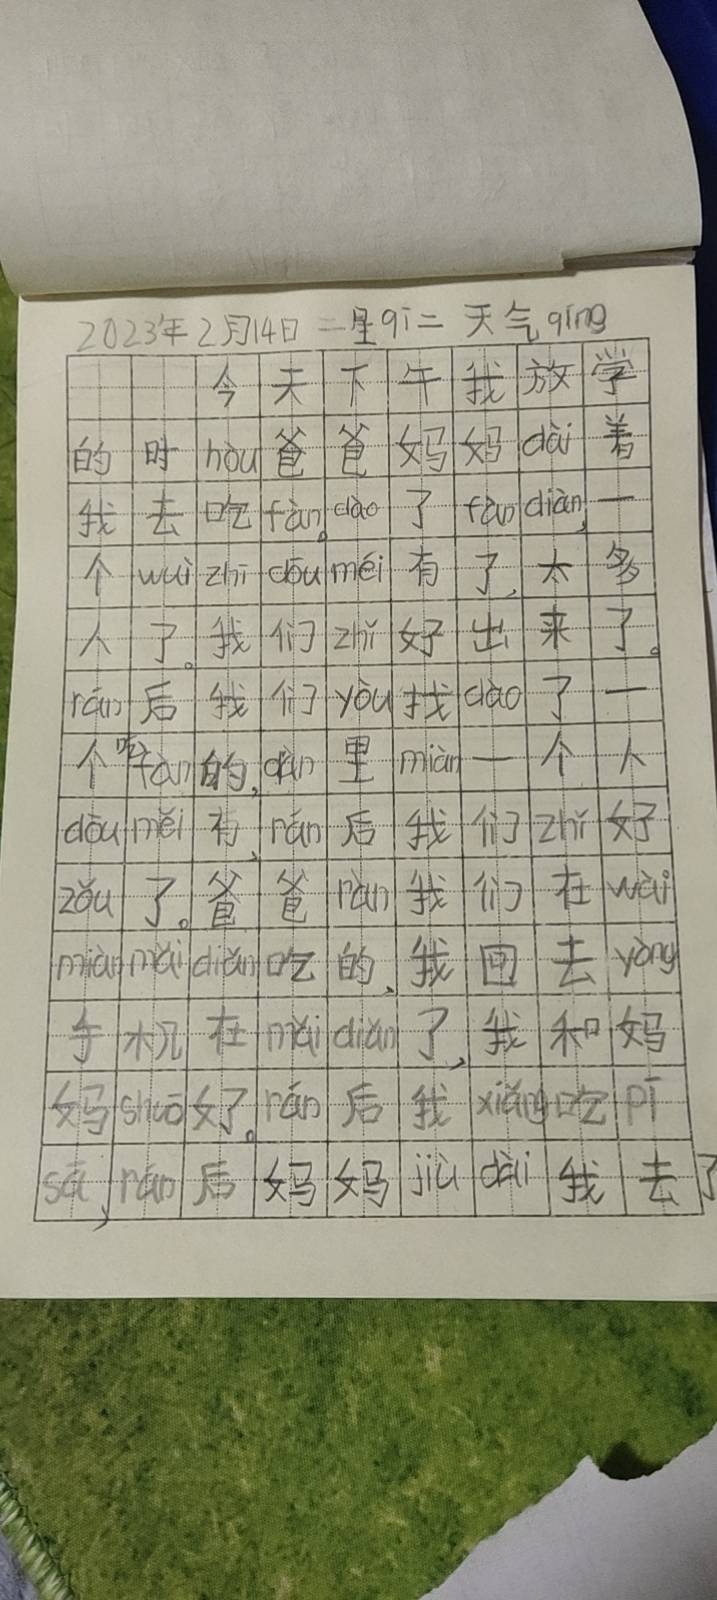 2023年2月14日 二星qī二 天气qíng
今天下午我放学
的时hòu爸爸妈妈dài着
我去吃fàn。dào了fàn diàn,一
个wuì zhī dōu méi有了,太多
人了。我们zhǐ好出来了。
rán后我们yòu找dào了一
个吃fàn的,dàn里miàn一个人
dōu měi有,rán后我们zhǐ好
zǒu了。爸爸ràn我们在wài
miàn mǎi diǎn吃的、我回去yòng
手机在mǎi diǎn了,我和妈
妈shuō好了。rán后我xiǎng吃pī
sā,rán后妈妈jiù dài我去了